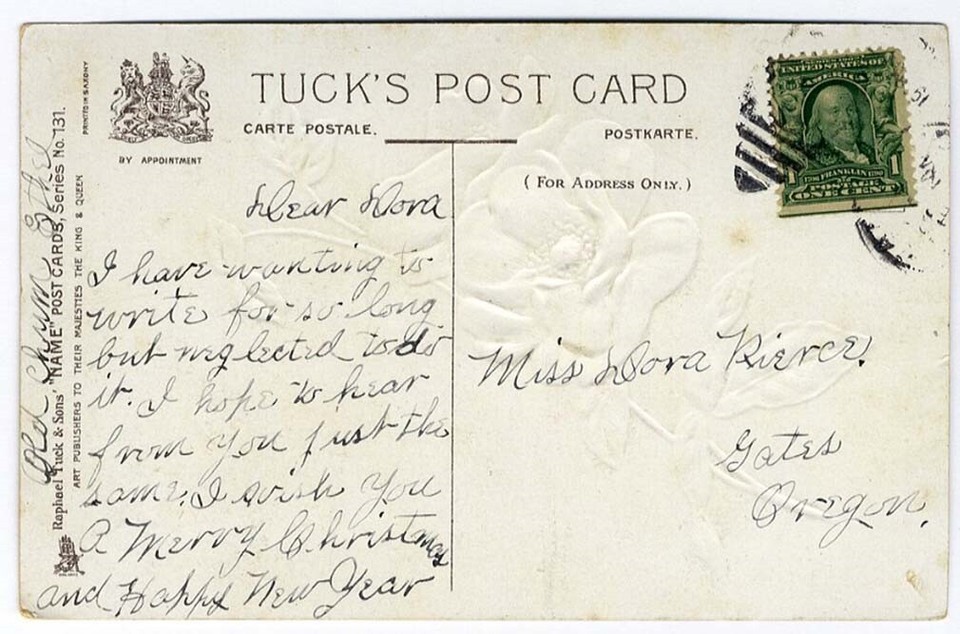 TUCK'S POST CARD
CARTE POSTALE.
POSTKARTE.
(FOR ADDRESS ONLY.)
BY APPOINTMENT
PRINTED IN SAXONY
Raphael Tuck & Sons' "NAME" POST CARDS, Series No. 131.
ART PUBLISHERS TO THEIR MAJESTIES THE KING & QUEEN
Dear Dora
I have wanting to
write for so long
but neglected to do
it. I hope to hear
from you just the
same. I wish you
A Merry Christmas
and Happy New Year
Old Chum Ethel
Miss Dora Pierce.
Gates
Oregon.
UNITED STATES OF
AMERICA
FRANKLIN
1 1
POSTAGE
ONE CENT